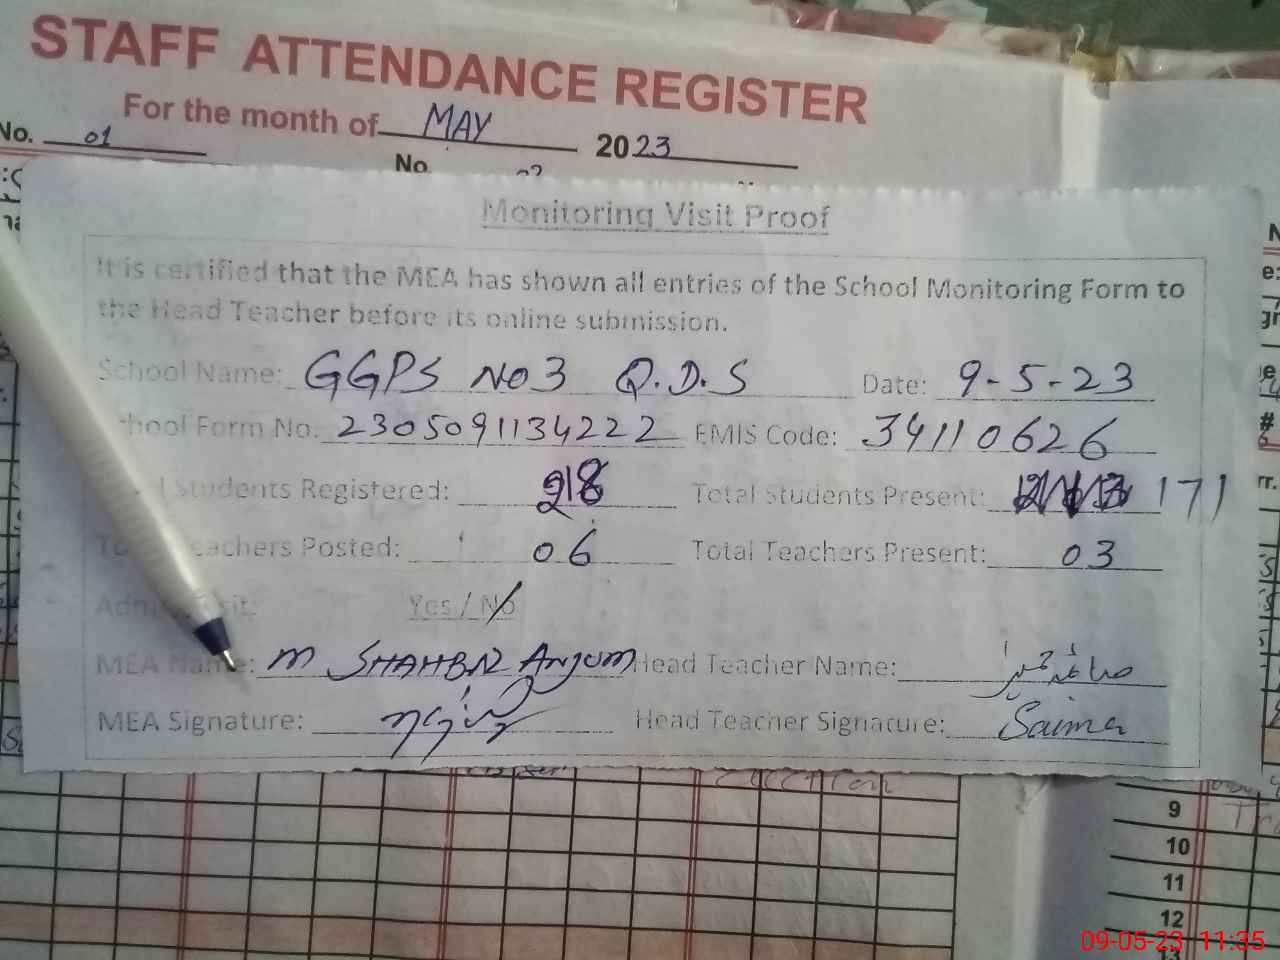 STAFF ATTENDANCE REGISTER
For the month of MAY 2023
No. 01
No.
Monitoring Visit Proof
It is certified that the MEA has shown all entries of the School Monitoring Form to
the Head Teacher before its online submission.
School Name: GGPS NO 3 Q.D.S Date: 9-5-23
hool Form No. 2305091134222 EMIS Code: 34110626
Students Registered: 218 Total Students Present: 171
eachers Posted: 06 Total Teachers Present: 03
Yes / No
MEA Name: M SHAHBAZ Anjum Head Teacher Name:
MEA Signature: Head Teacher Signature: Saima
9
10
11
12
13
09-05-23 11:35